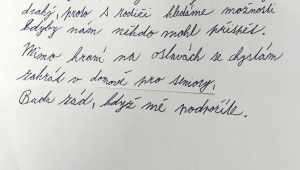 drahý, proto s rodiči hledáme možnosti
kdyby nám někdo mohl přispět.
Mimo hraní na oslavách se chystám
zahrát v domově pro seniory.
Budu rád, když mě podpoříte.